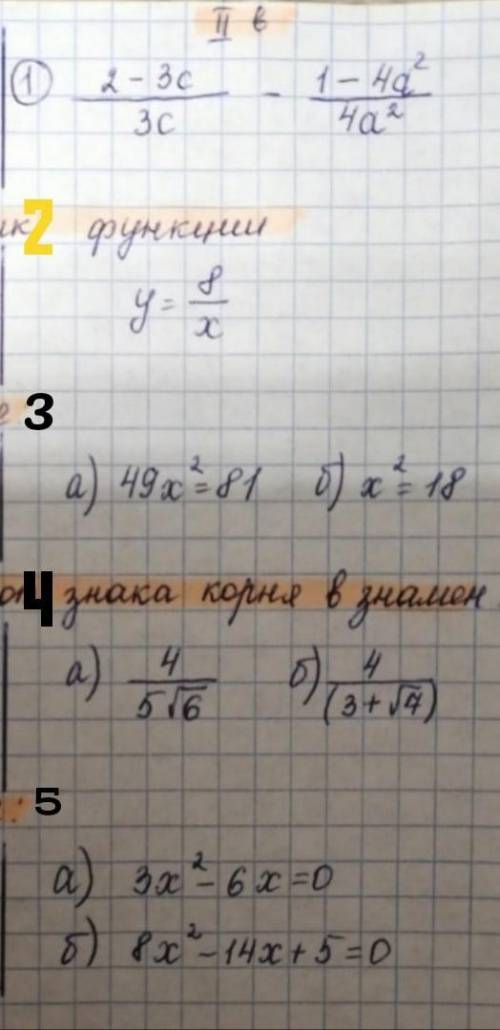 II в
① 2 - 3c / 3c - 1 - 4a² / 4a²
2 функции
y = 8/x
3
а) 49x² = 81 б) x² = 18
4 знака корня в знамен
а) 4 / 5√6 б) 4 / (3 + √7)
5
а) 3x² - 6x = 0
б) 8x² - 14x + 5 = 0